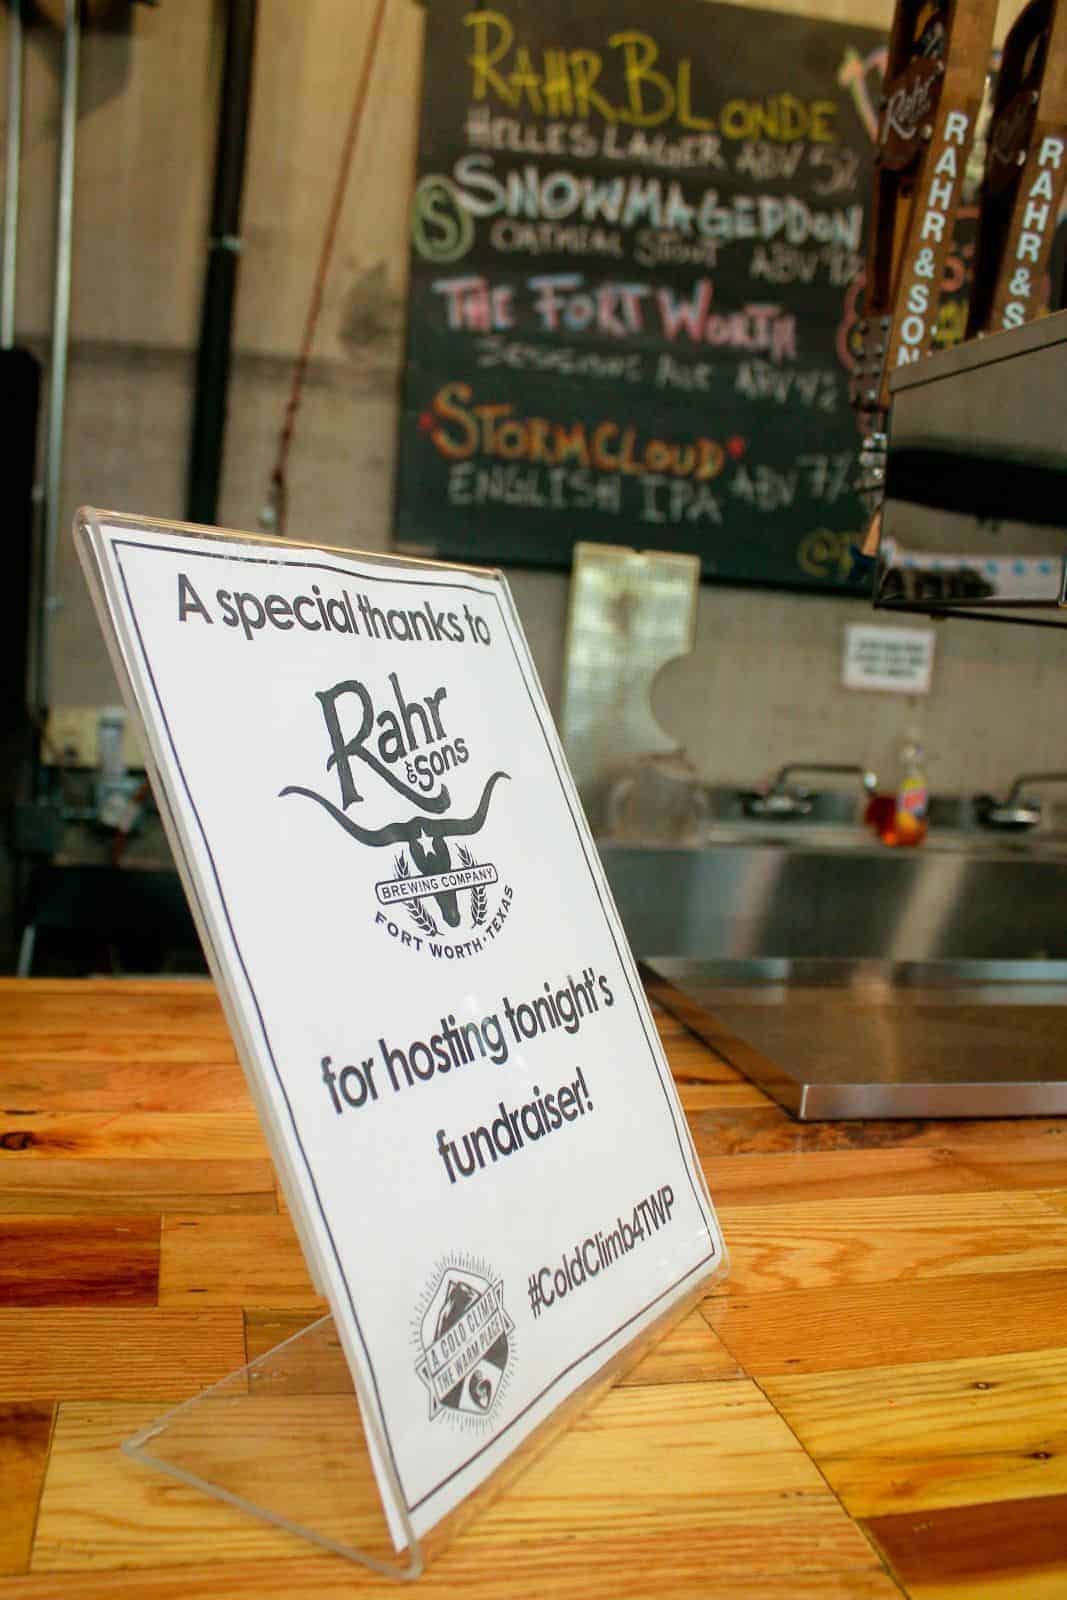 RAHR BLONDE
HELLES LAGER ABV 5%
S SNOWMAGEDDON
OATMEAL STOUT ABV
THE FORT WORTH
ALE ABV
STORMCLOUD
ENGLISH IPA ABV 7%
Rahr
RAHR & SON
RAHR & S
A special thanks to
Rahr
& Sons
BREWING COMPANY
FORT WORTH • TEXAS
for hosting tonight's
fundraiser!
#ColdClimb4TWP
A COLD CLIMB
THE WARM PLACE